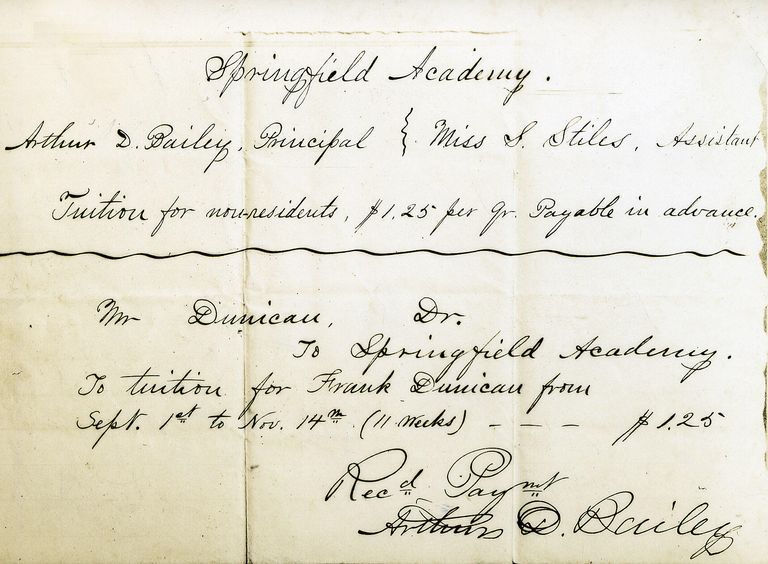 Springfield Academy.
Arthur D. Bailey, Principal } Miss S. Stiles, Assistant
Tuition for non-residents, $1.25 per qr. Payable in advance.
Mr Dunican, Dr.
To Springfield Academy.
To tuition for Frank Dunican from
Sept. 1st to Nov. 14th (11 weeks) - - - $1.25
Recd Paymt
Arthur D. Bailey